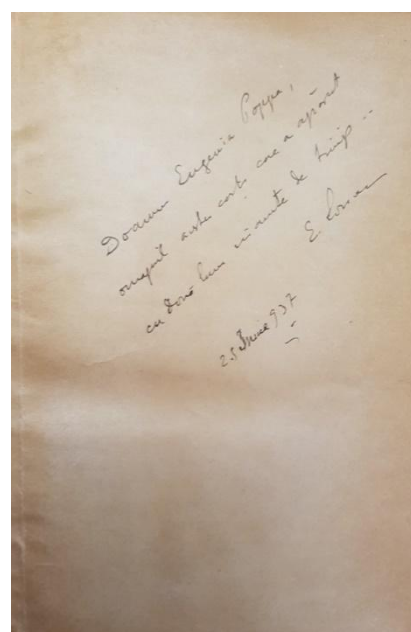 Doamnei Eugenia Poppa,
omagiul acestei cărți care a apărut
cu două luni înainte de timp ..
E.
25 Iunie 937